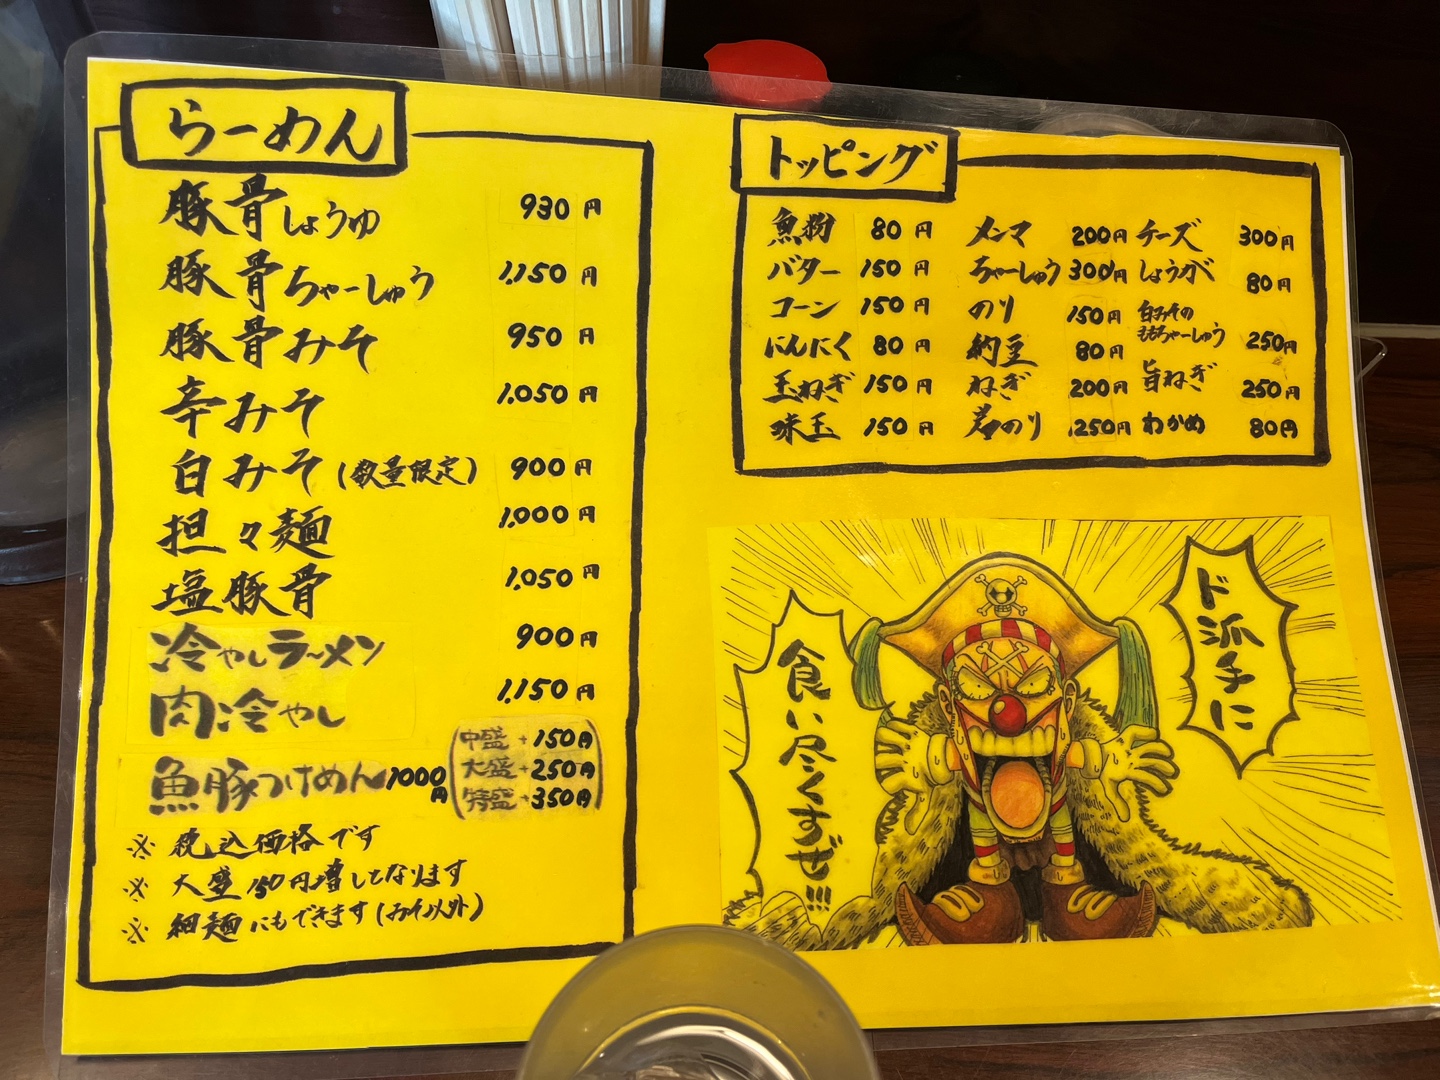 らーめん
豚骨しょうゆ 930円
豚骨ちゃーしゅう 1,150円
豚骨みそ 950円
辛みそ 1,050円
白みそ(数量限定) 900円
担々麺 1,000円
塩豚骨 1,050円
冷やしラーメン 900円
肉冷やし 1,150円
魚豚つけめん 1000円
中盛+150円
大盛+250円
特盛+350円
※ 税込価格です
※ 大盛150円増しとなります
※ 細麺にもできます(みそ以外)
トッピング
魚粉 80円
バター 150円
コーン 150円
にんにく 80円
玉ねぎ 150円
味玉 150円
メンマ 200円
ちゃーしゅう 300円
のり 150円
納豆 80円
ねぎ 200円
岩のり 250円
チーズ 300円
しょうが 80円
白みその
ももちゃーしゅう 250円
旨ねぎ 250円
わかめ 80円
ド派手に
食い尽くすぜ!!!